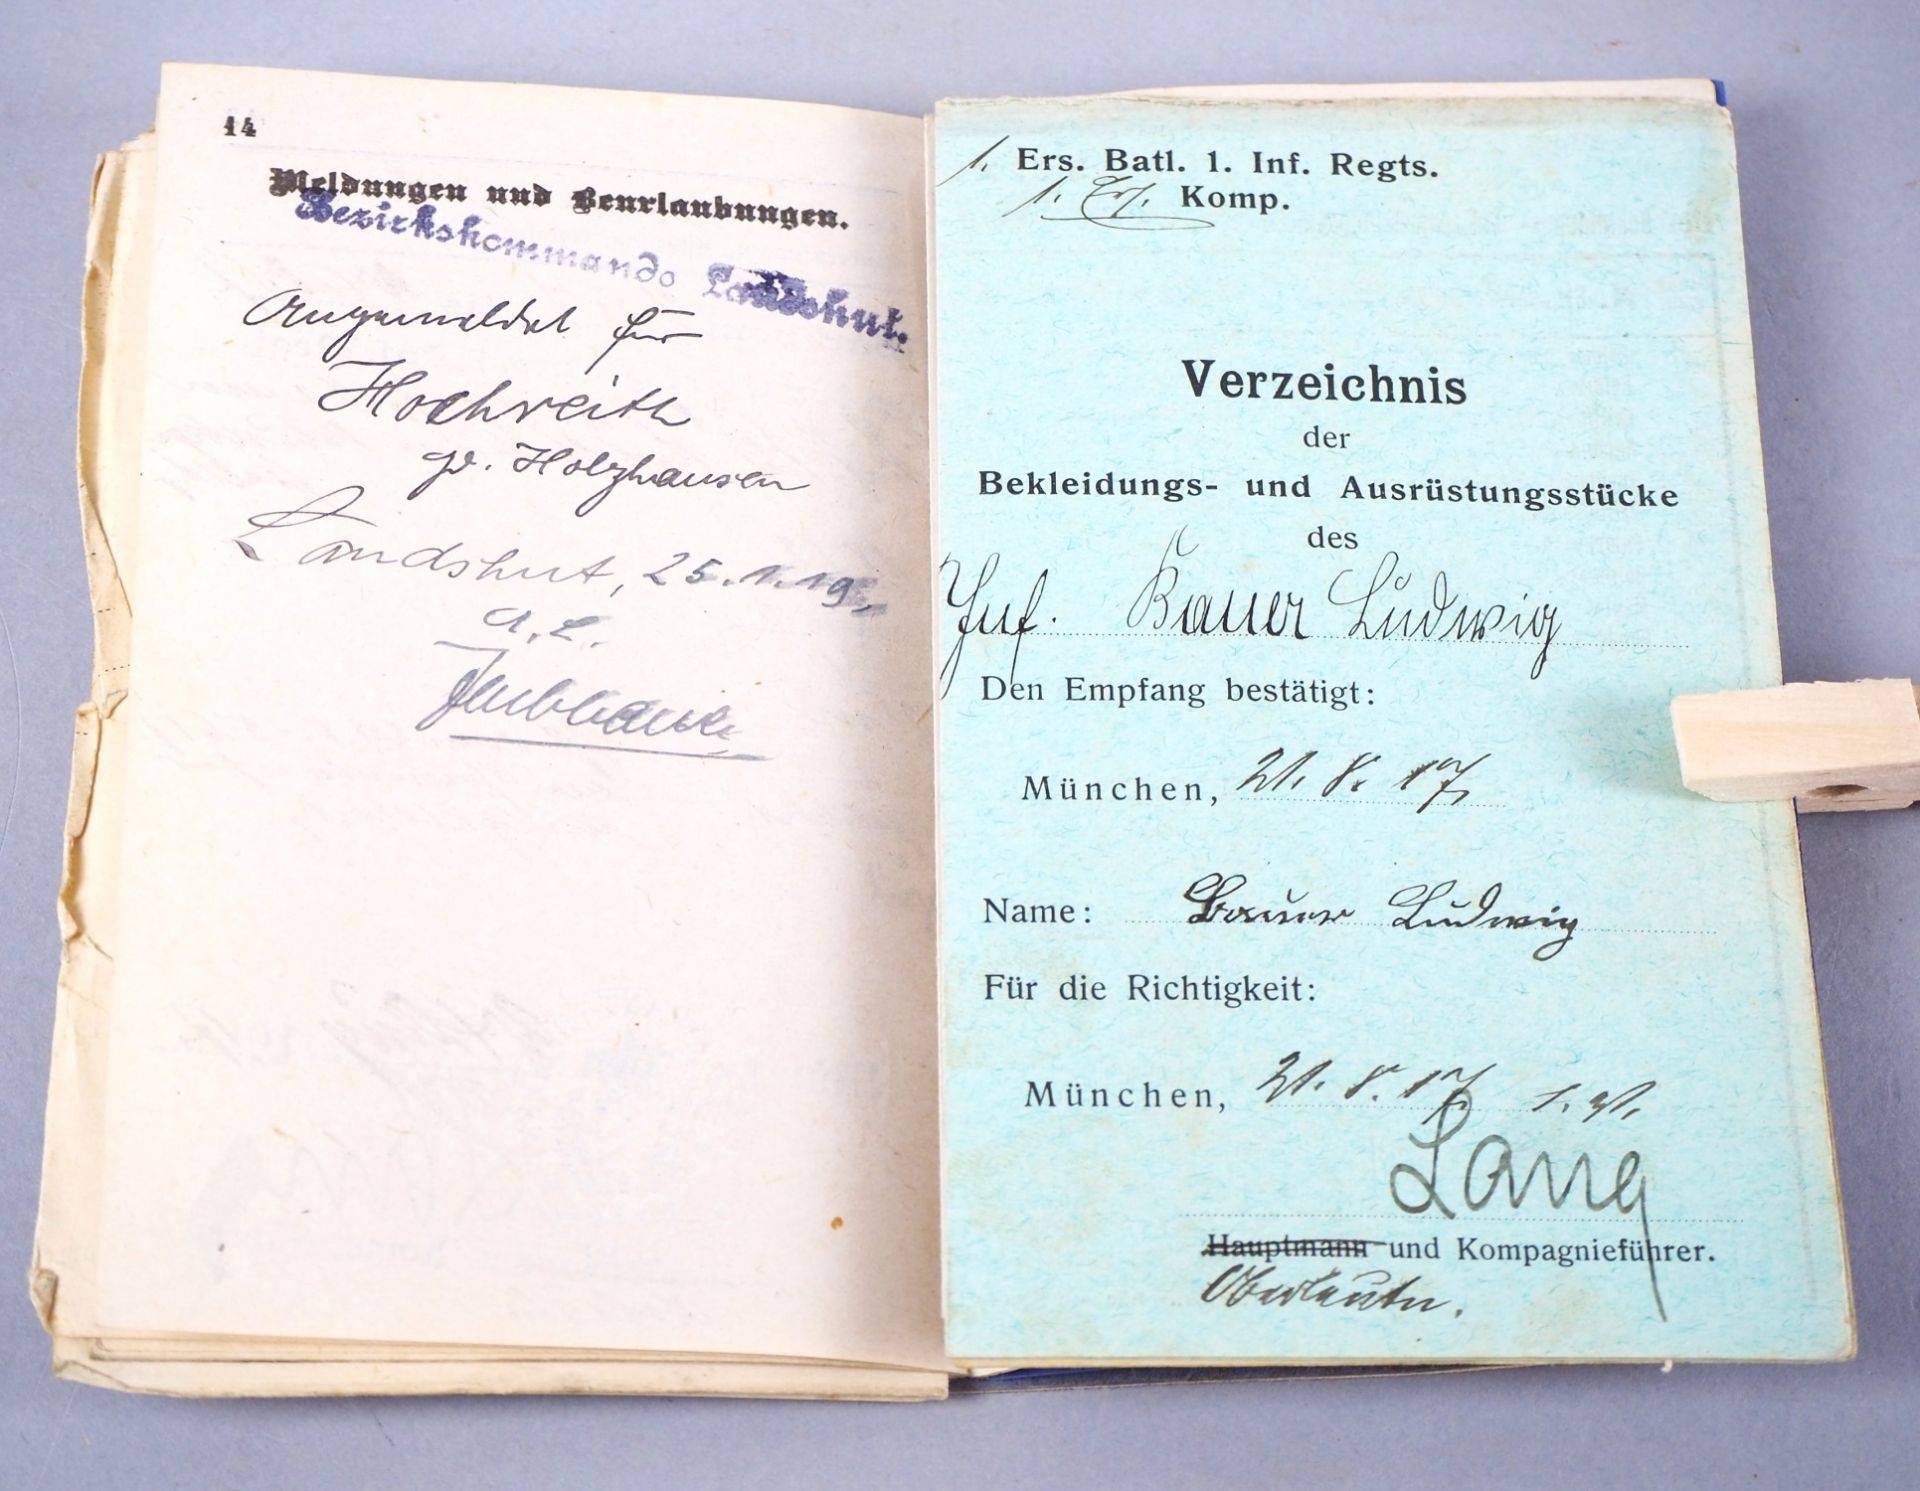 14
Meldungen und Beurlaubungen.
Bezirkskommando Landshut.
Angemeldet für
Hochreith
Holzhausen
Landshut, 25.1.19.
1. Ers. Batl. 1. Inf. Regts.
1. Ers. Komp.
Verzeichnis
der
Bekleidungs- und Ausrüstungsstücke
des
Inf. Bauer Ludwig
Den Empfang bestätigt:
München, 21. 8. 17.
Name: Bauer Ludwig
Für die Richtigkeit:
München, 21. 8. 17.
Lang
Hauptmann und Kompagnieführer.
Oberleutn.